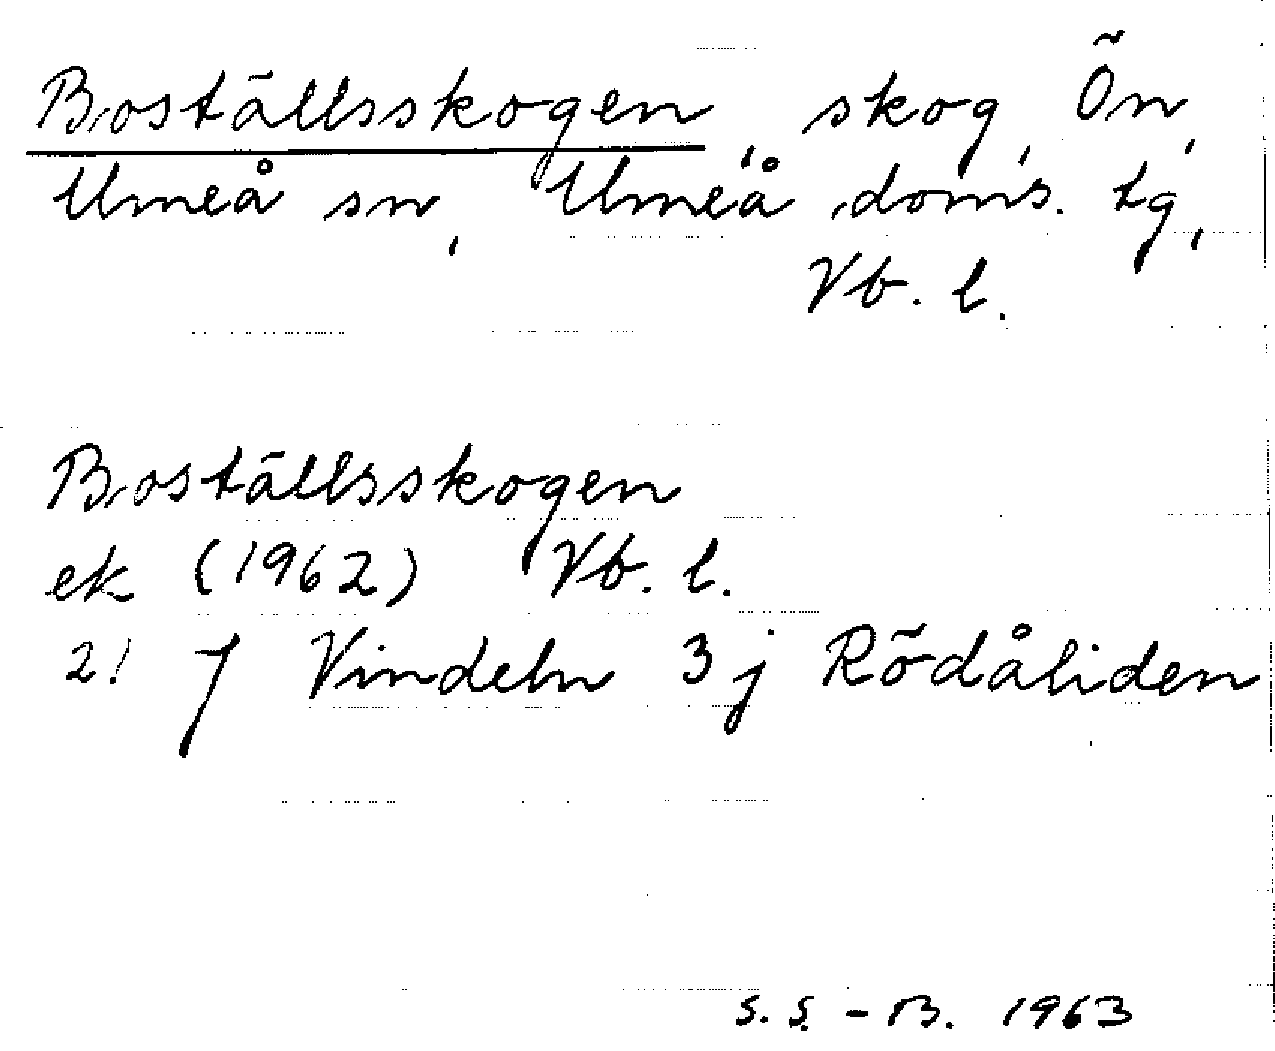 Boställsskogen, skog, Ön,
Umeå sn, Umeå doms. tg,
Vb. l.
Boställsskogen
ek (1962) Vb. l.
21 J Vindeln 3j Rödåliden
S. S. - B. 1963